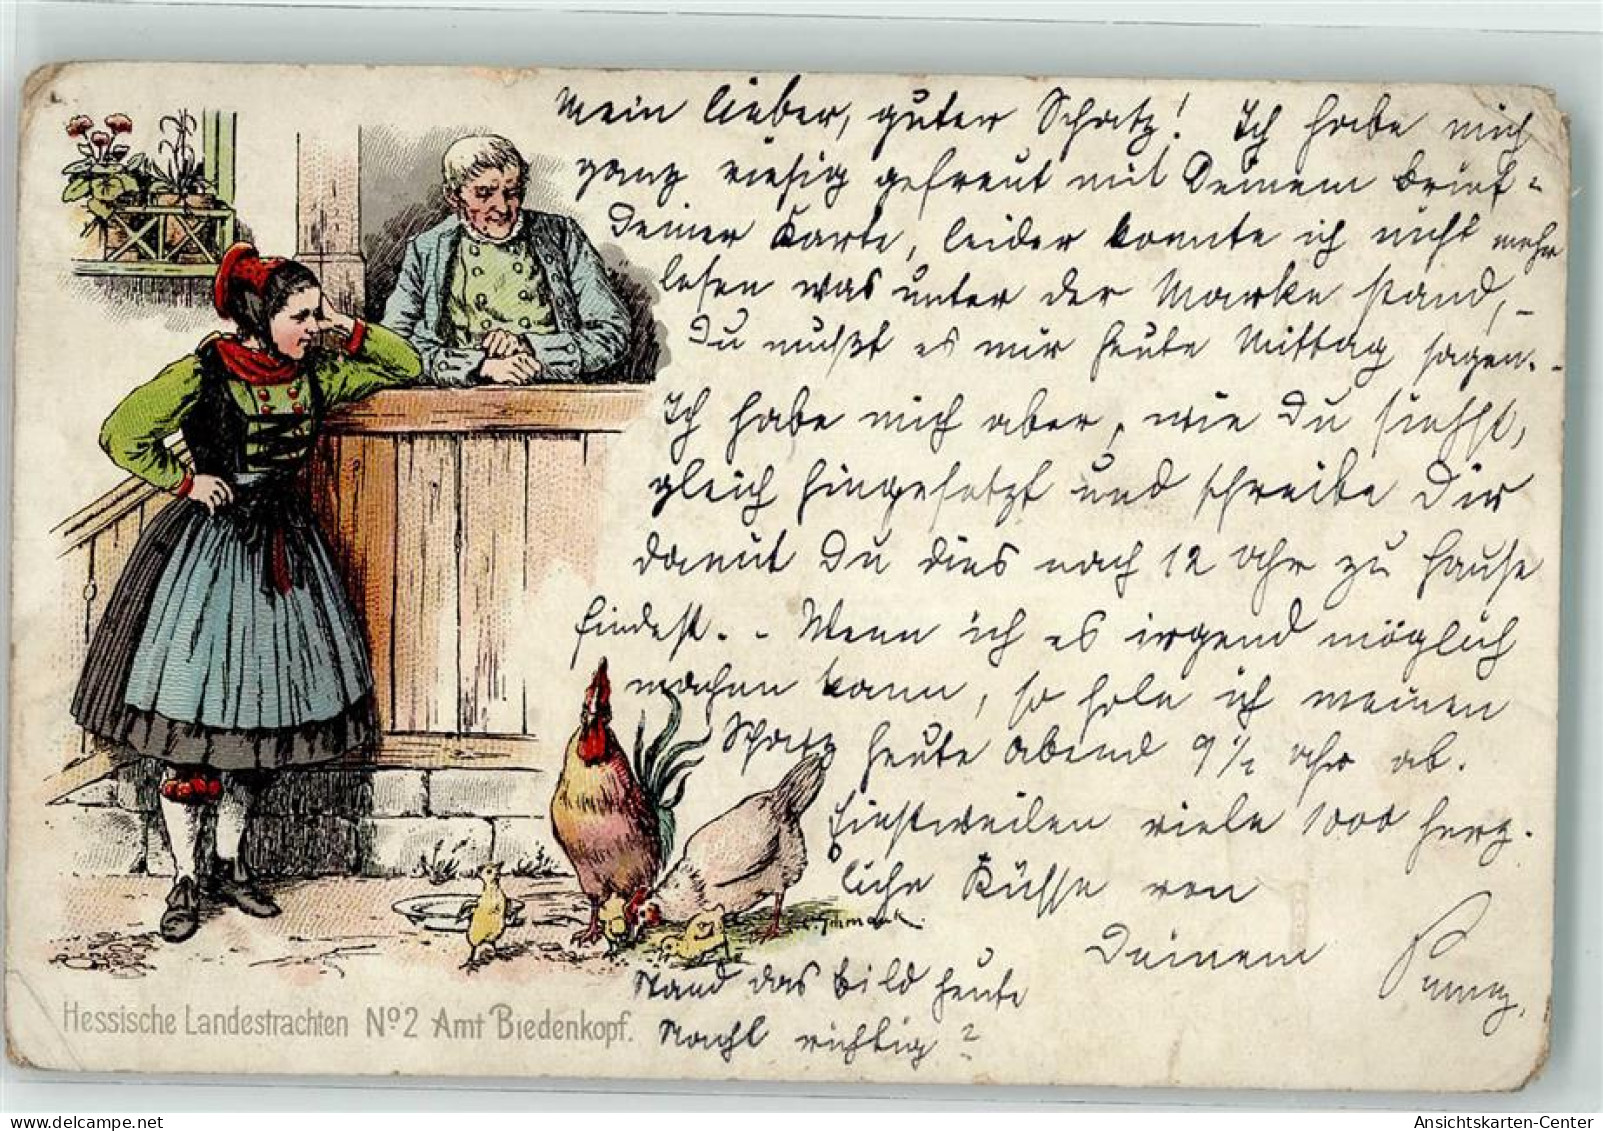 Mein lieber, guter Schatz! Ich habe mich
ganz riesig gefreut mit Deinem Brief -
Deiner Karte, leider konnte ich nicht mehr
lesen was unter der Marke stand, -
Du mußt es mir heute Mittag sagen. -
Ich habe mich aber, wie Du siehst,
gleich hingesetzt und schreibe Dir
damit Du dies nach 12 Uhr zu Hause
findest. - Wenn ich es irgend möglich
machen kann, so hole ich meinen
Schatz heute Abend 9 1/2 Uhr ab.
Einstweilen viele 1000 herz-
liche Küsse von
Deinem
Stand das Bild heute
Nacht richtig?
Hessische Landestrachten No 2 Amt Biedenkopf.
Ansichtskarten-Center